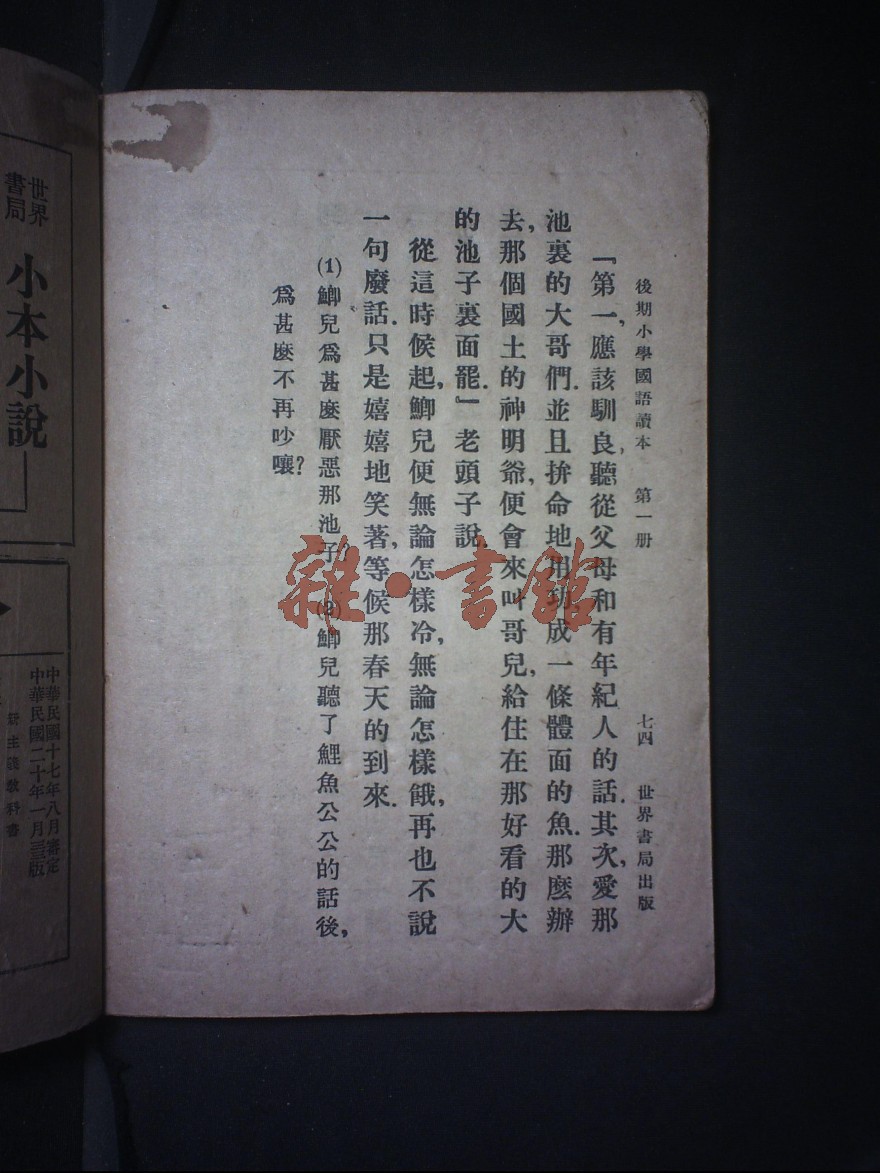 後期小學國語讀本　第一册　七四　世界書局出版
「第一，應該馴良，聽從父母和有年紀人的話．其次，愛那
池裏的大哥們．並且拚命地用功，成一條體面的魚．那麼辦
去，那個國土的神明爺，便會來叫哥兒，給住在那好看的大
的池子裏面罷．」老頭子說．
從這時候起，鯽兒便無論怎樣冷，無論怎樣餓，再也不說
一句廢話．只是嬉嬉地笑著，等候那春天的到來．
(1)鯽兒爲甚麼厭惡那池子？(2)鯽兒聽了鯉魚公公的話後，
爲甚麼不再吵嚷？
雜·書館
世界
書局
小本小說
中華民國十七年八月審定
中華民國二十年一月三三版
新主義教科書